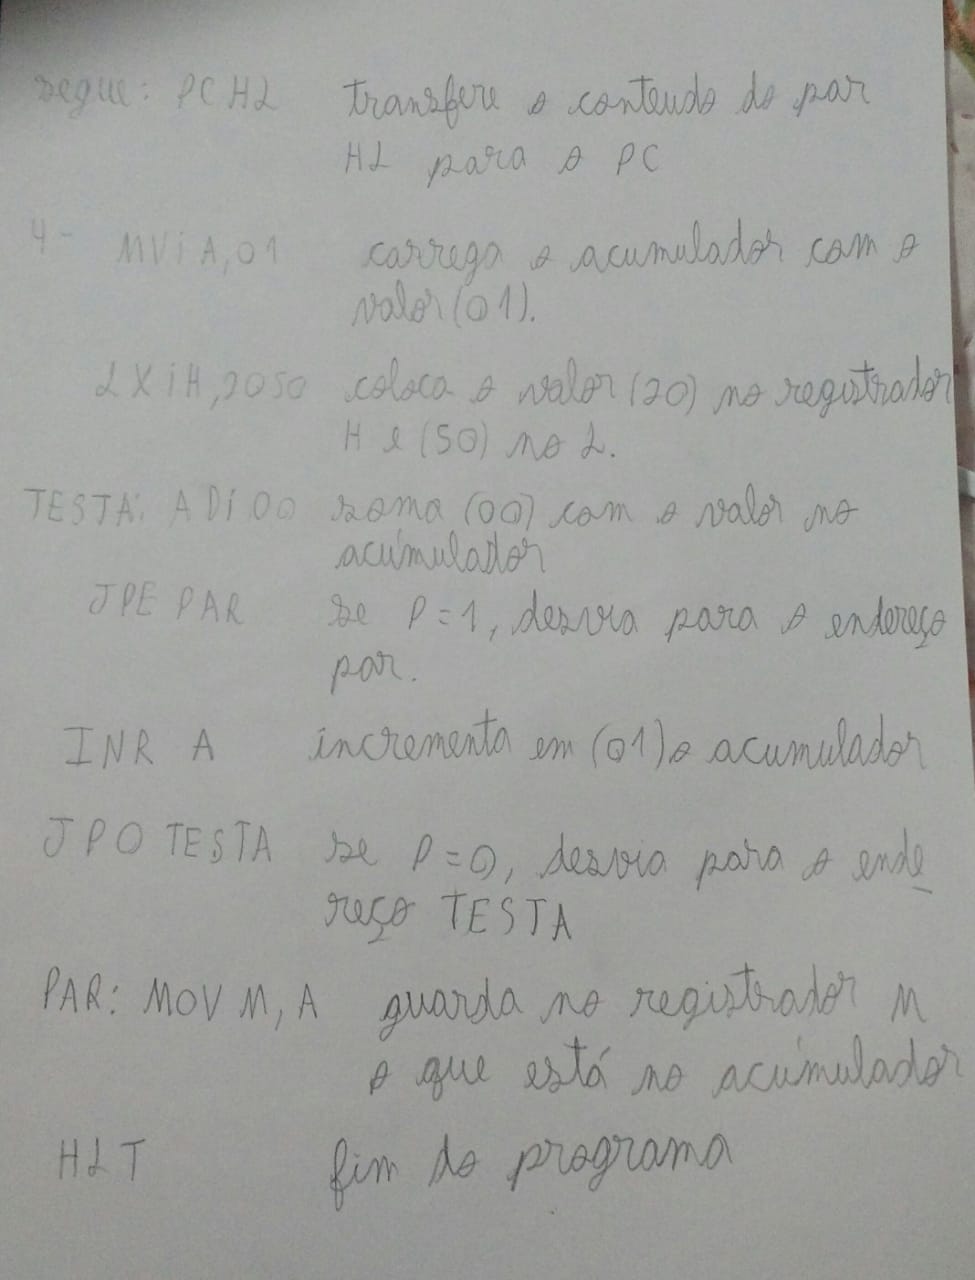 segue: PCHL transfere o conteudo do par
HL para o PC
4- MViA,01 carrega o acumulador com o
valor (01).
LXiH,2050 coloca o valor (20) no registrador
H e (50) no L.
TESTA: ADi 00 soma (00) com o valor no
acumulador
JPE PAR se P=1, desvia para o endereço
par.
INR A incrementa em (01) o acumulador
JPO TESTA se P=0, desvia para o ende
reço TESTA
PAR: MOV M, A guarda no registrador M
o que está no acumulador
HLT fim do programa